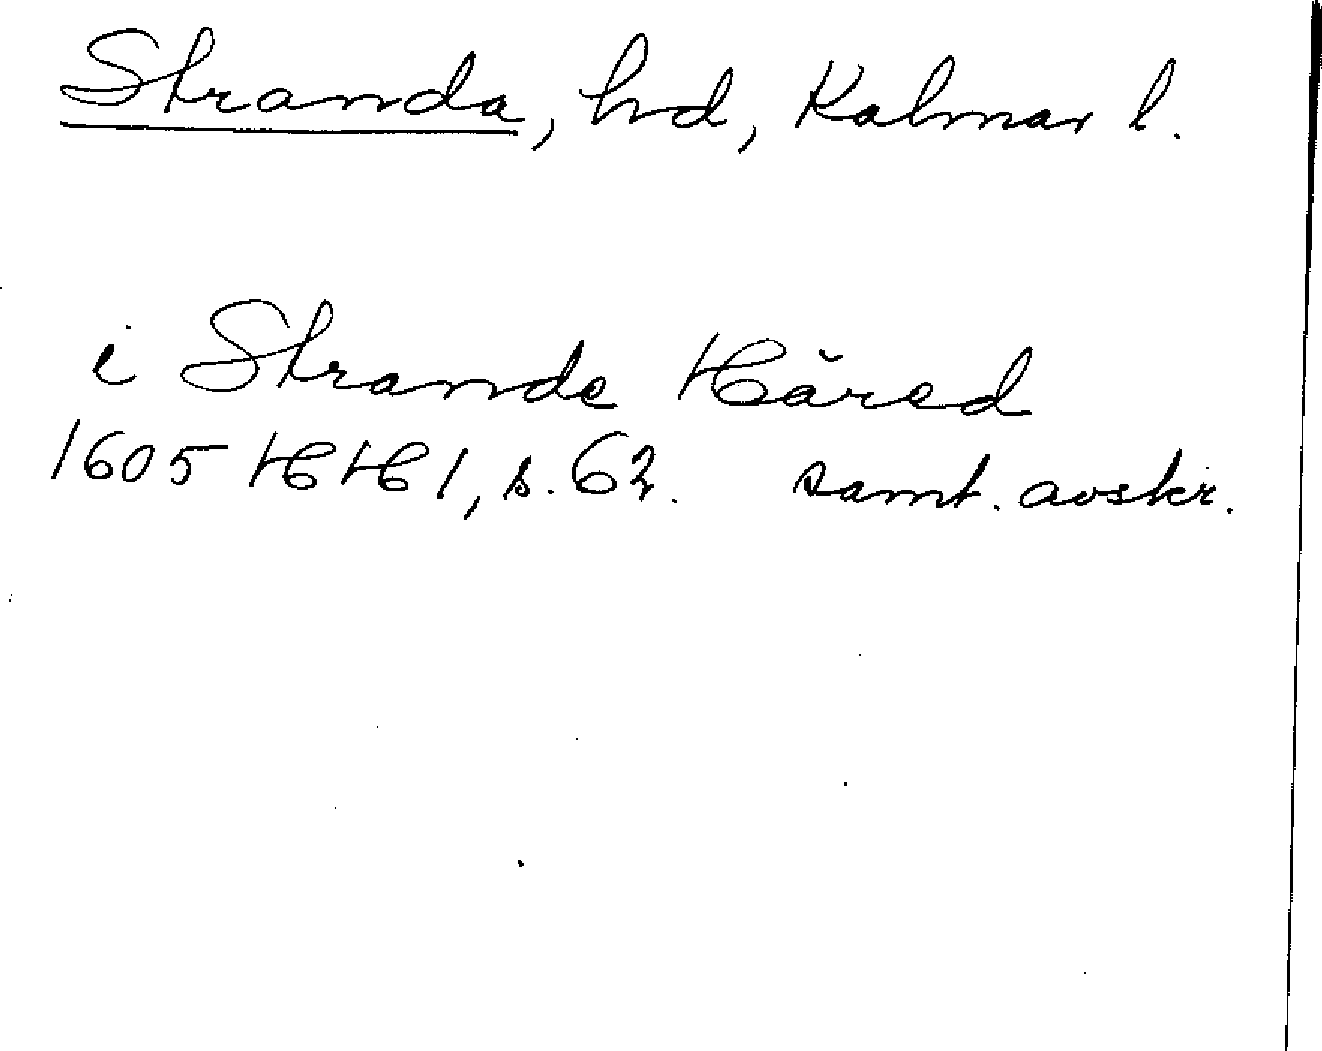 Stranda, hd, Kalmar l.
i Strande Häred
1605 HH 1, s. 62. samt. avskr.